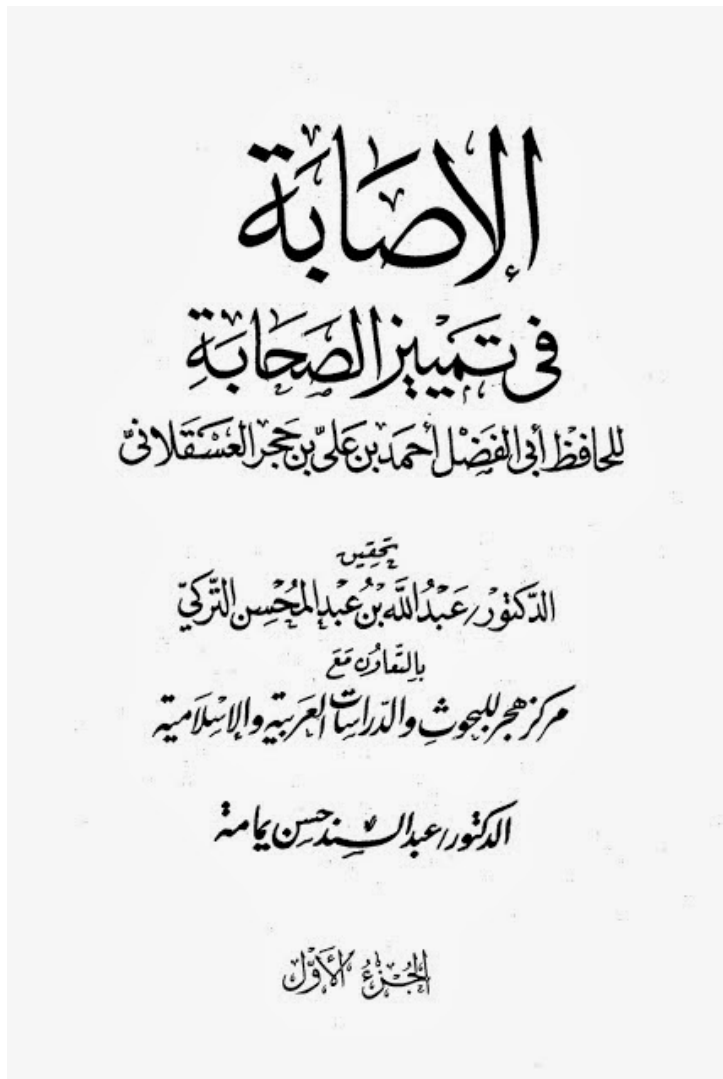 الإصَابَة
في تَميْيز الصَحَابَةِ
للحافظ أبي الفَضْل أحمَد بن عَليّ بن حَجر العَسْقَلانيّ
تحقيق
الدّكتور/ عَبْدُ اللَّه بنُ عَبد المُحْسِن التّركيّ
بالتّعاوُن مَعَ
مركز هجر للبحوثِ والدّراسات العَربية والإسْلاميّة
الدكتور/ عبد السند حسن يمامة
الجُزءُ الأوّل